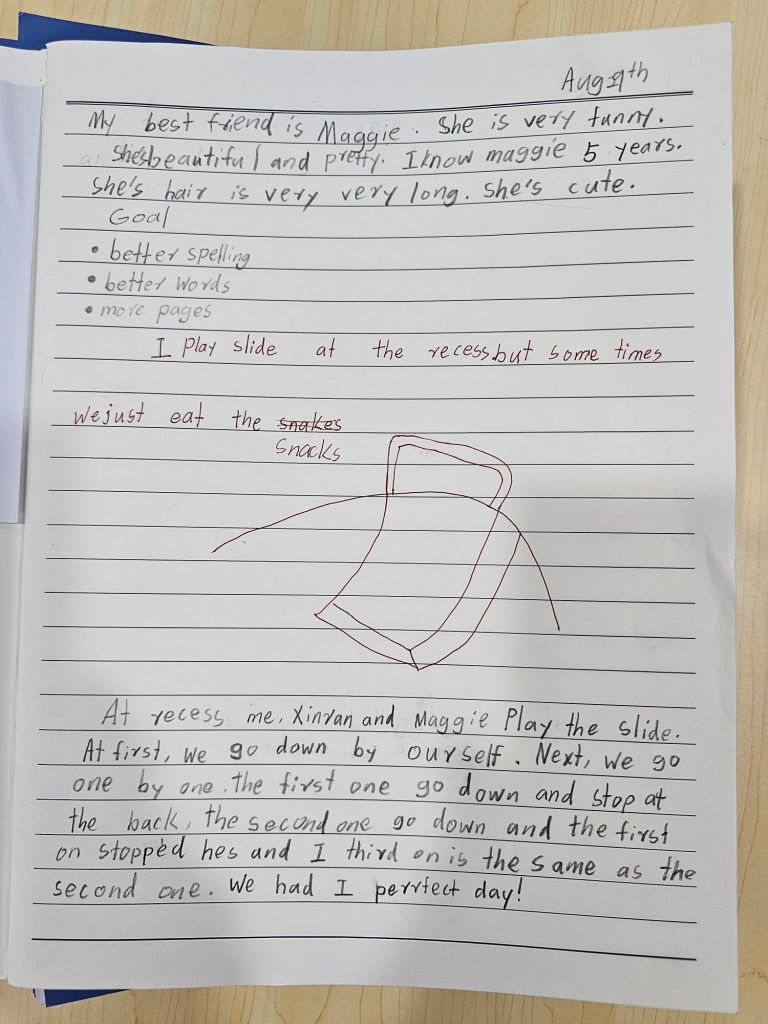 Aug th
My best friend is Maggie. She is very funny.
She's beautiful and pretty. I know maggie 5 years.
She's hair is very very long. She's cute.
Goal
• better spelling
• better words
• more pages
I Play slide at the recess but some times
We just eat the snakes
Snacks
At recess me, Xinran and Maggie Play the slide.
At first, we go down by ourself. Next, we go
one by one, the first one go down and stop at
the back, the second one go down and the first
on stopped hes and I third on is the same as the
second one. We had I perrfect day!